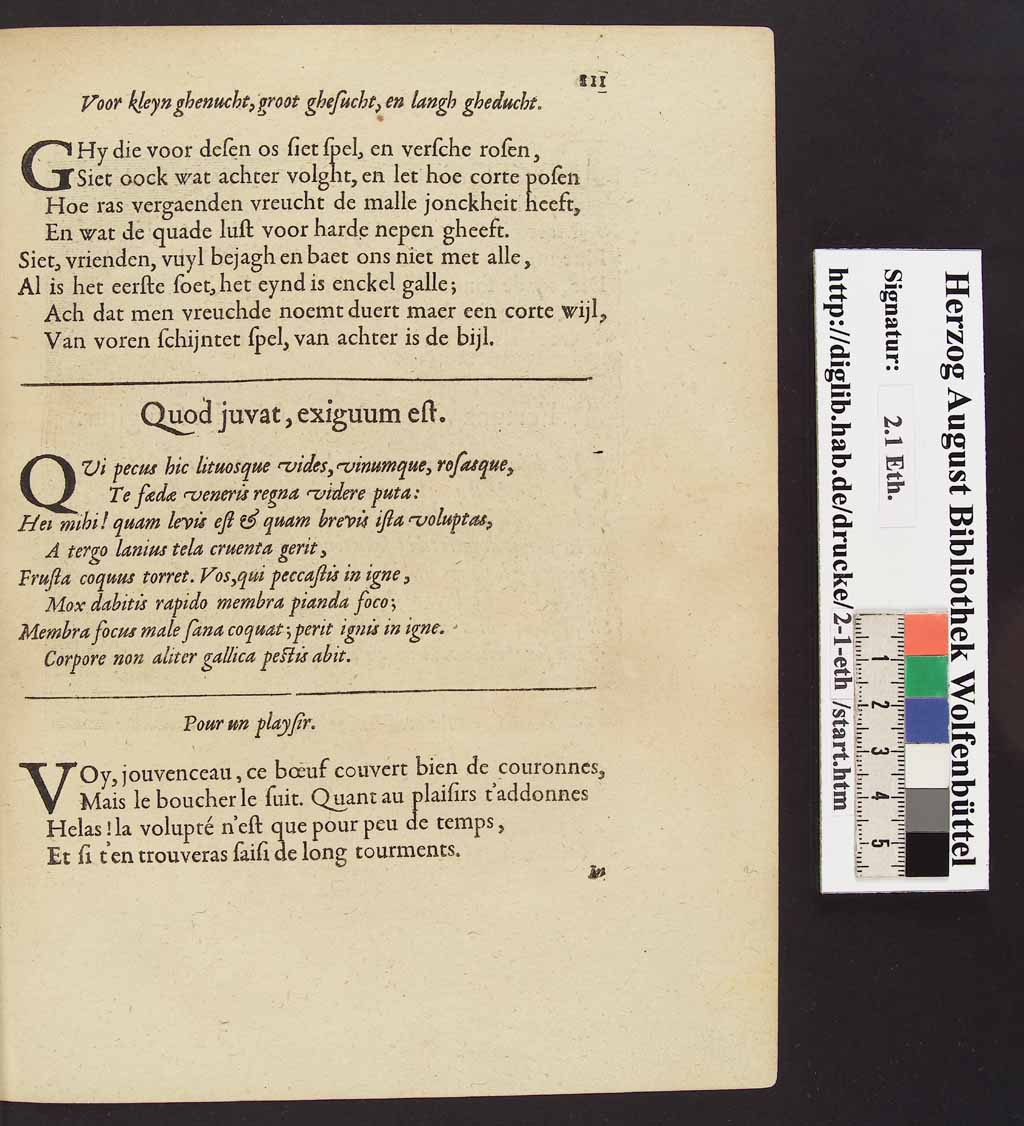 III
Voor kleyn ghenucht, groot gheſucht, en langh gheducht.
GHy die voor deſen os ſiet ſpel, en verſche roſen,
Siet oock wat achter volght, en let hoe corte poſen
Hoe ras vergaenden vreucht de malle jonckheit heeft,
En wat de quade luſt voor harde nepen gheeft.
Siet, vrienden, vuyl bejagh en baet ons niet met alle,
Al is het eerſte ſoet, het eynd is enckel galle;
Ach dat men vreuchde noemt duert maer een corte wijl,
Van voren ſchijntet ſpel, van achter is de bijl.
Quod juvat, exiguum eſt.
QVi pecus hic lituosque vides, vinumque, roſasque,
Te fædæ veneris regna videre puta:
Hei mihi! quam levis eſt & quam brevis iſta voluptas,
A tergo lanius tela cruenta gerit,
Fruſta coquus torret. Vos, qui peccaſtis in igne,
Mox dabitis rapido membra pianda foco;
Membra focus male ſana coquat; perit ignis in igne.
Corpore non aliter gallica peſtis abit.
Pour un playſir.
VOy, jouvenceau, ce bœuf couvert bien de couronnes,
Mais le boucher le ſuit. Quant au plaiſirs t'addonnes
Helas! la volupté n'eſt que pour peu de temps,
Et ſi t'en trouveras ſaiſi de long tourments.
In
Herzog August Bibliothek Wolfenbüttel
Signatur: 2.1 Eth.
http://diglib.hab.de/drucke/2-1-eth /start.htm
1 2 3 4 5